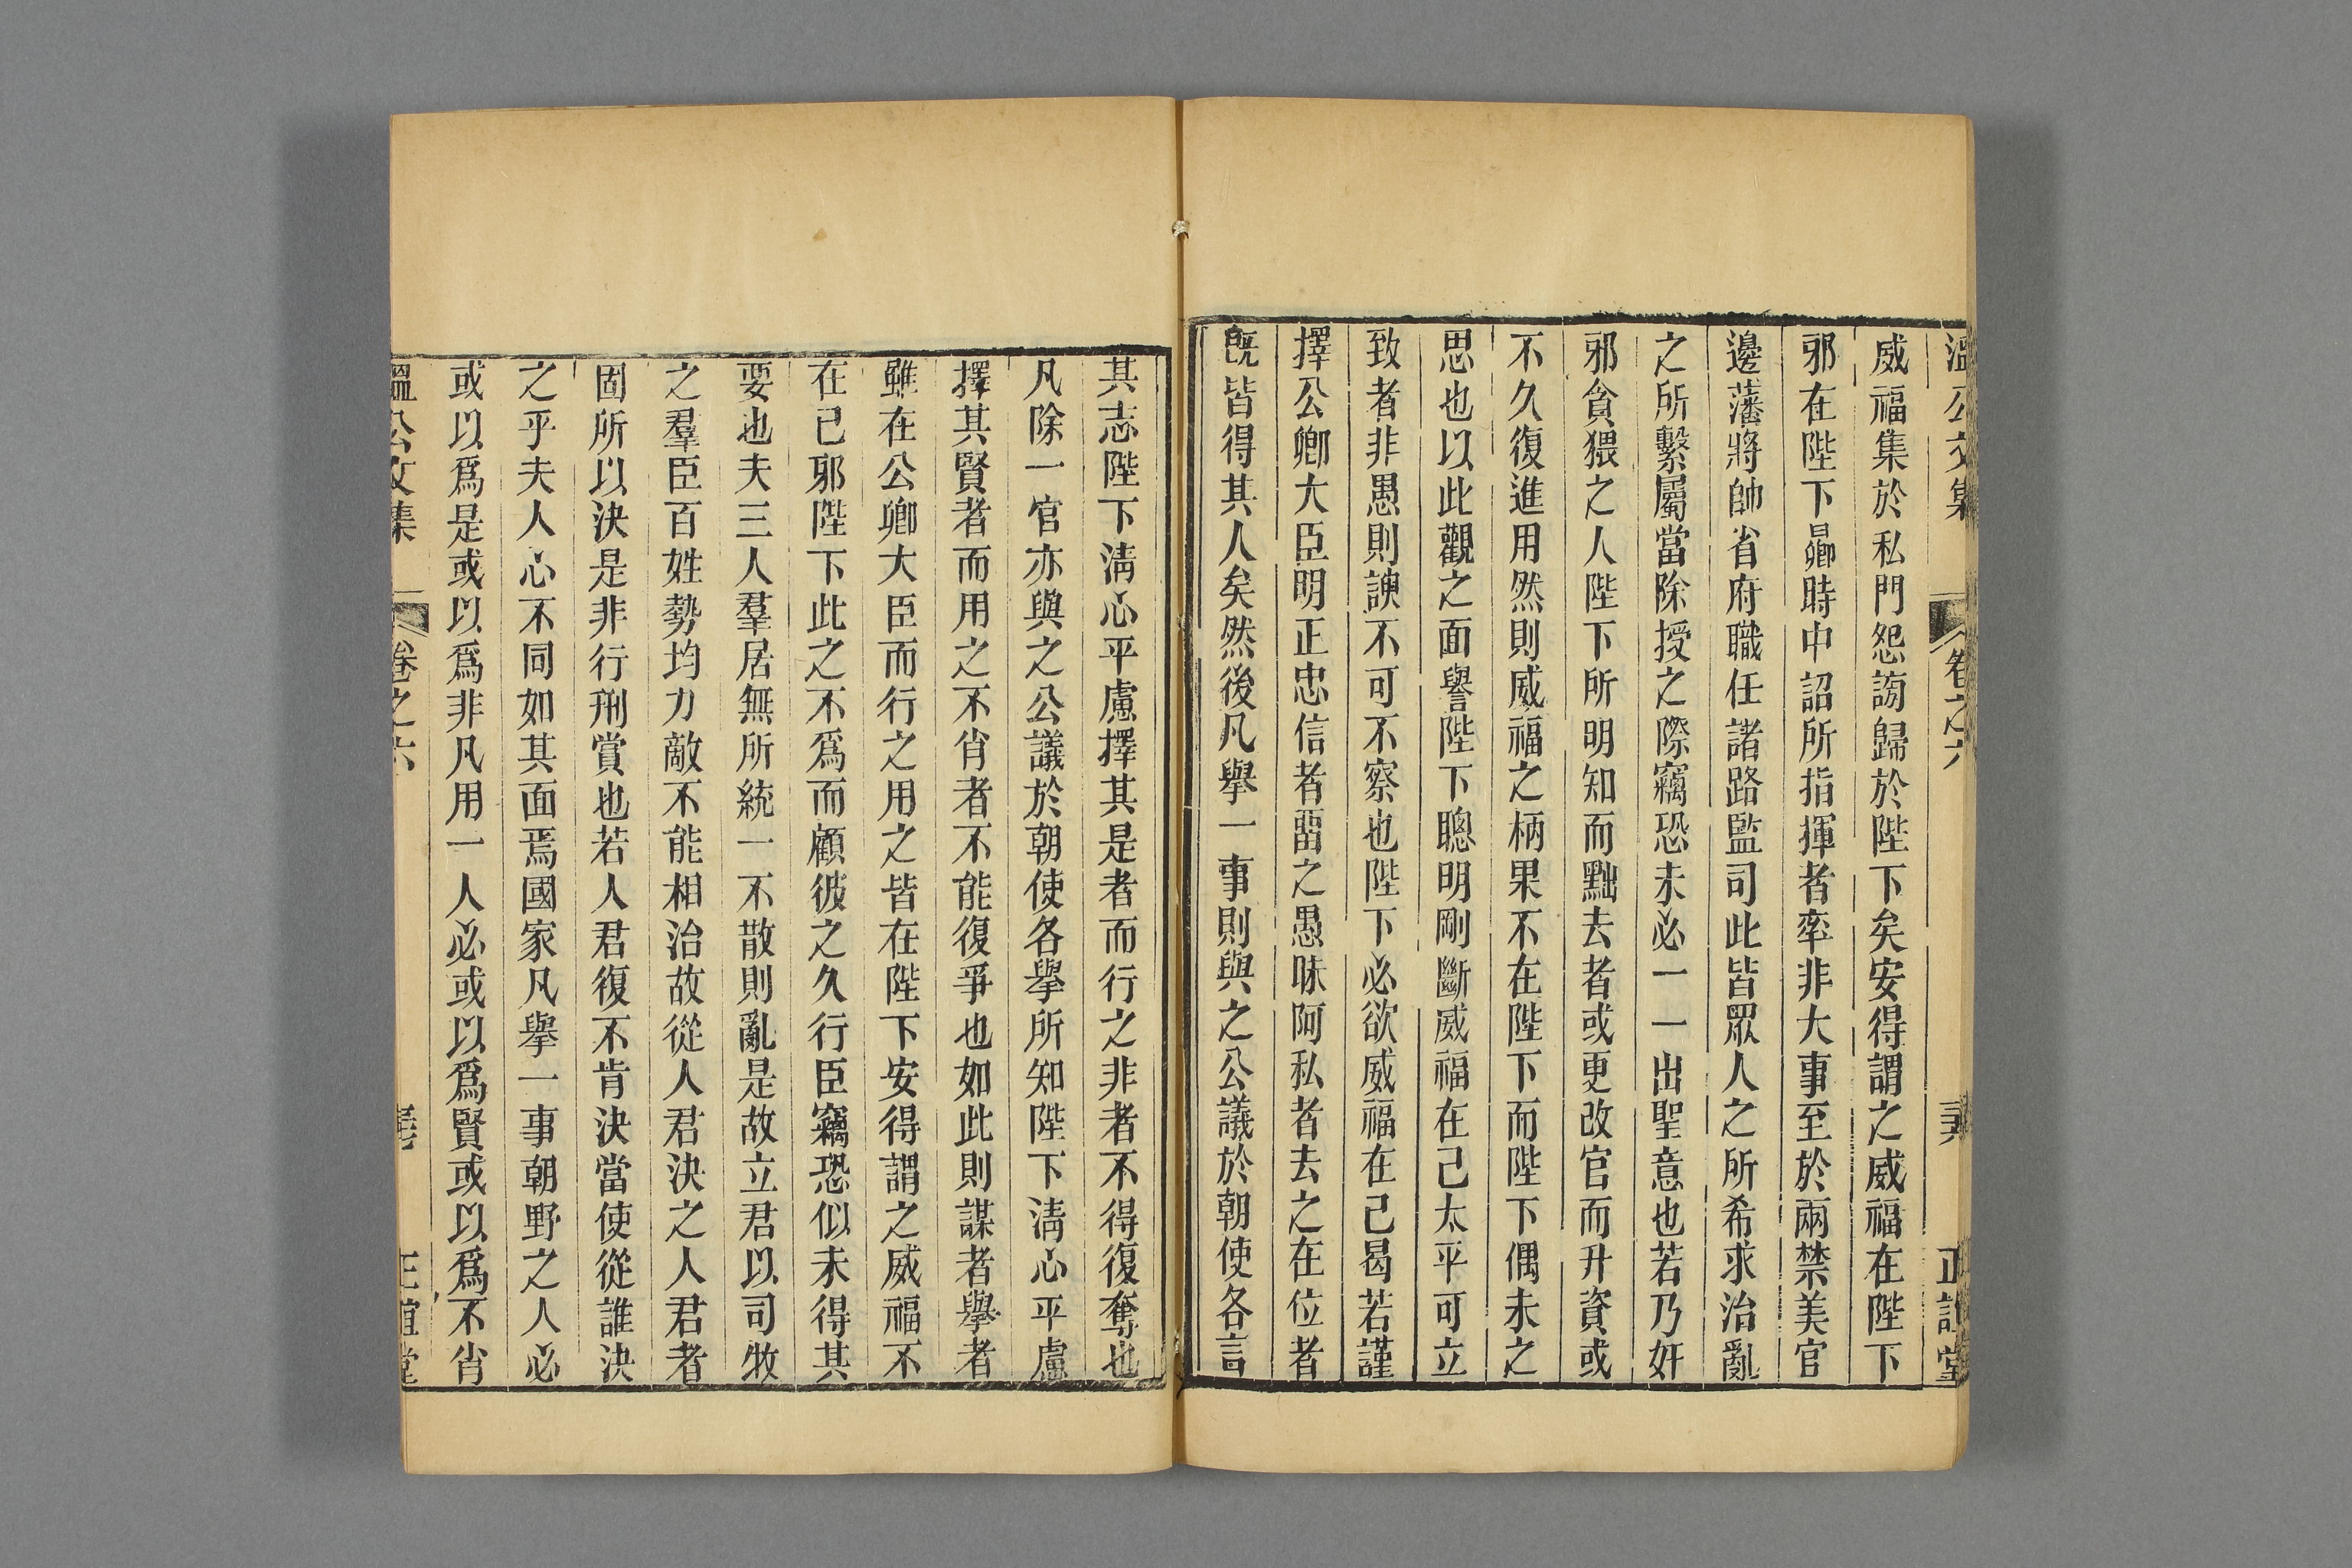 溫公文集
卷之六
正誼堂
威福集於私門怨謗歸於陛下矣安得謂之威福在陛下
邪在陛下曏時中詔所指揮者率非大事至於兩禁美官
邊藩將帥省府職任諸路監司此皆眾人之所希求治亂
之所繫屬當除授之際竊恐未必一一出聖意也若乃奸
邪貪猥之人陛下所明知而黜去者或更改官而升資或
不久復進用然則威福之柄果不在陛下而陛下偶未之
思也以此觀之面譽陛下聰明剛斷威福在己太平可立
致者非愚則諛不可不察也陛下必欲威福在己曷若謹
擇公卿大臣明正忠信者畱之愚昧阿私者去之在位者
旣皆得其人矣然後凡舉一事則與之公議於朝使各言
其志陛下淸心平慮擇其是者而行之非者不得復奪也
凡除一官亦與之公議於朝使各舉所知陛下淸心平慮
擇其賢者而用之不肖者不能復爭也如此則謀者舉者
雖在公卿大臣而行之用之皆在陛下安得謂之威福不
在已邪陛下此之不爲而顧彼之久行臣竊恐似未得其
要也夫三人羣居無所統一不散則亂是故立君以司牧
之羣臣百姓勢均力敵不能相治故從人君決之人君者
固所以決是非行刑賞也若人君復不肯決當使從誰決
之乎夫人心不同如其面焉國家凡舉一事朝野之人必
或以爲是或以爲非凡用一人必或以爲賢或以爲不肖
溫公文集
卷之六
正誼堂